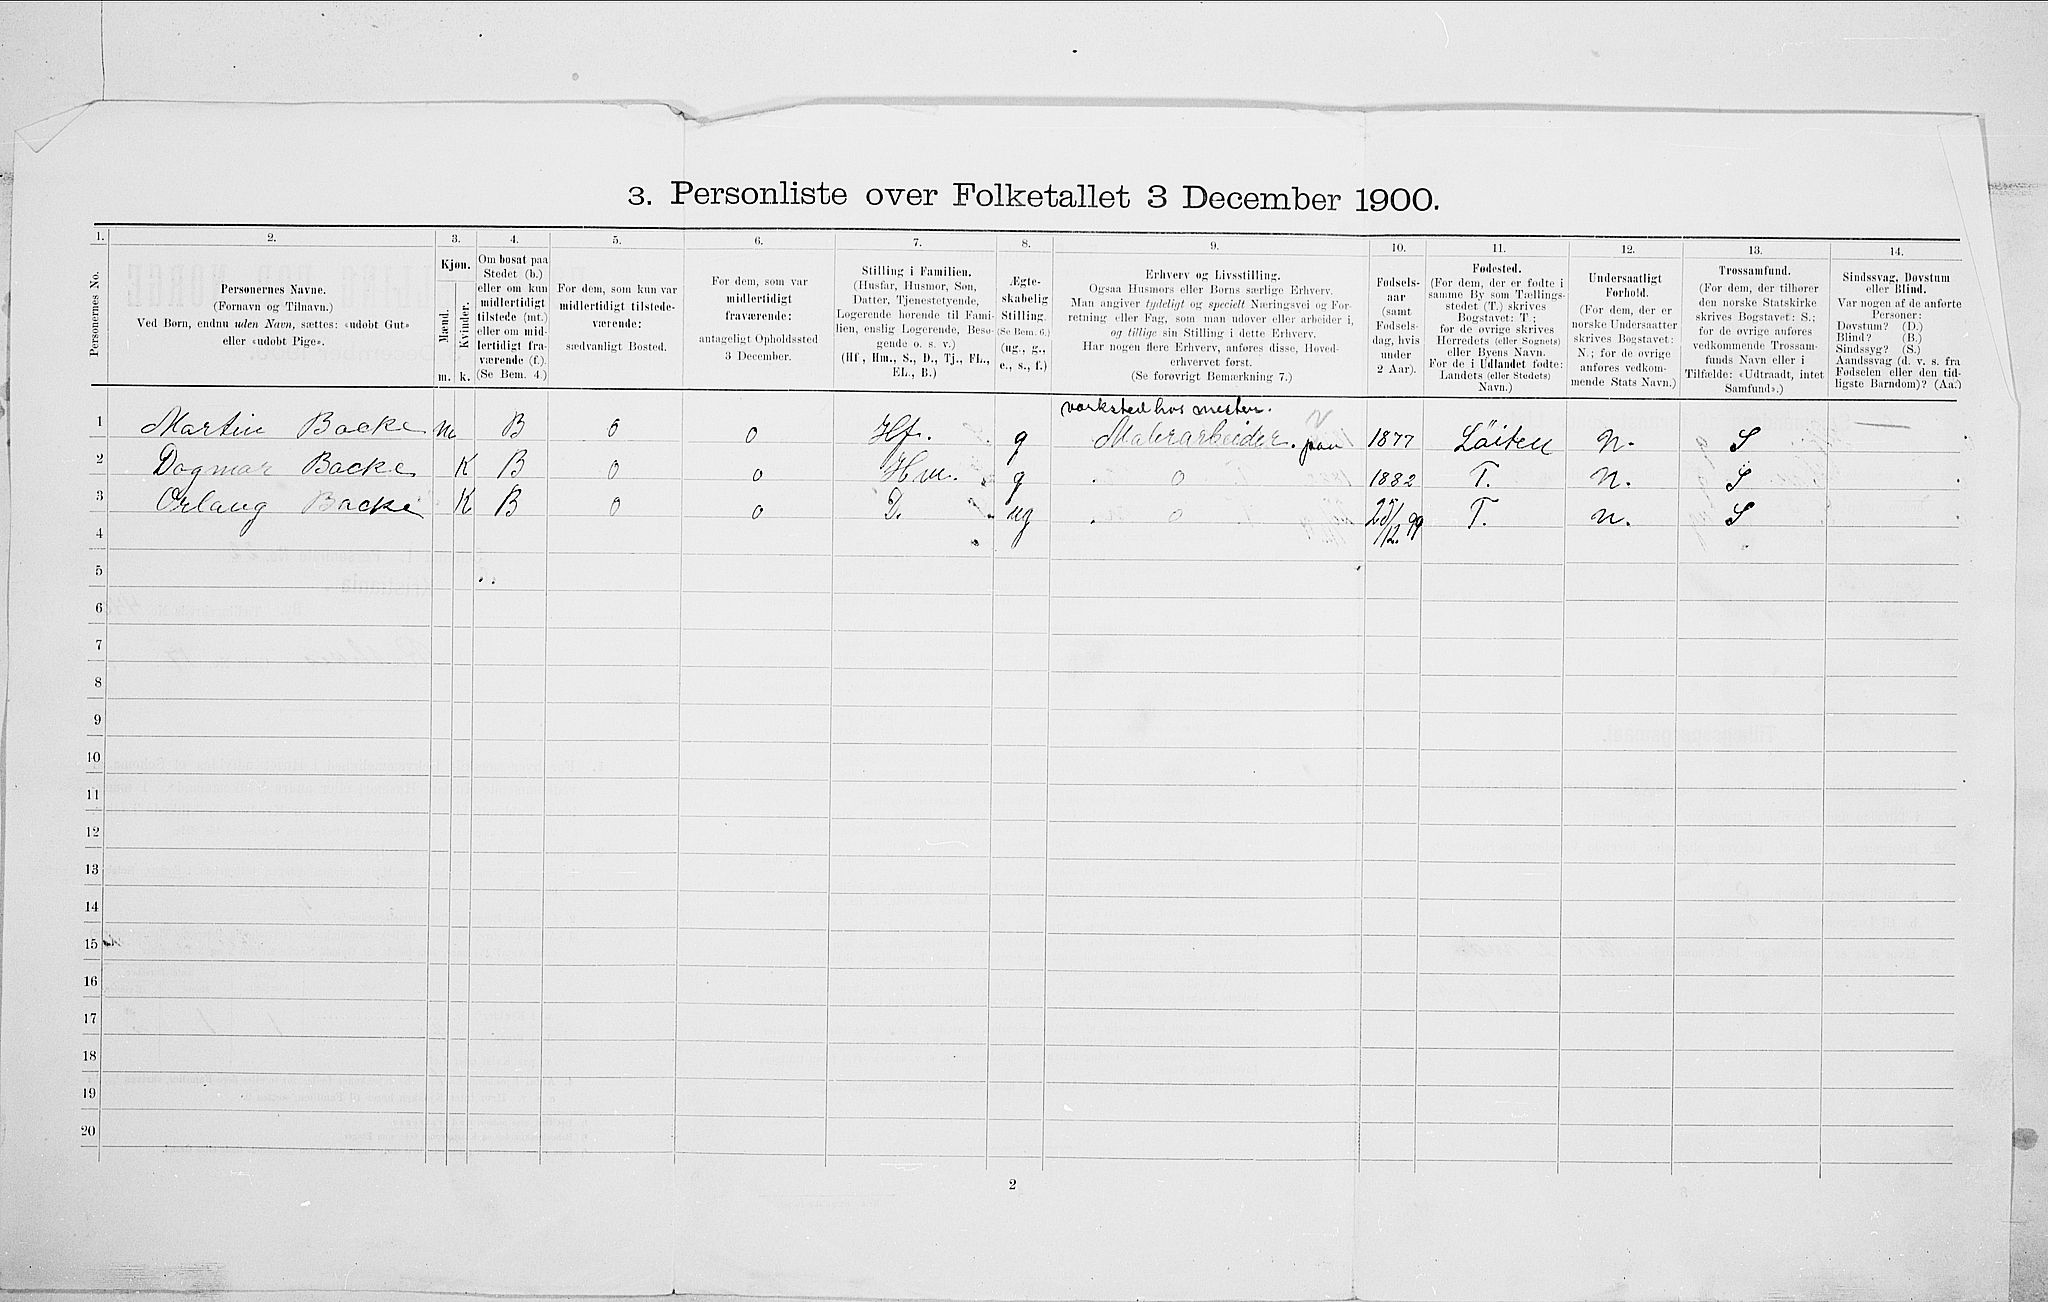 3. Personliste over Folketallet 3 December 1900.
1. 2. 3. 4. 5. 6. 7. 8. 9. 10. 11. 12. 13. 14.
Personernes No.
Personernes Navne.
(Fornavn og Tilnavn.)
Ved Børn, endnu uden Navn, sættes: «udøbt Gut»
eller «udøbt Pige».
Kjøn.
Mænd.
Kvinder.
m. k.
Om bosat paa
Stedet (b.)
eller om kun
midlertidigt
tilstede (mt.)
eller om mid-
lertidigt fra-
værende (f.).
(Se Bem. 4.)
For dem, som kun var
midlertidigt tilstede-
værende:
sædvanligt Bosted.
For dem, som var
midlertidigt
fraværende:
antageligt Opholdssted
3 December.
Stilling i Familien.
(Husfar, Husmor, Søn,
Datter, Tjenestetyende,
Logerende hørende til Fami-
lien, enslig Logerende, Besø-
gende o. s. v.)
(Hf., Hm., S., D., Tj., FL.,
EL., B.)
Ægte-
skabelig
Stilling.
(Se Bem. 6.)
(ug., g.,
e., s., f.)
Erhverv og Livsstilling.
Ogsaa Husmors eller Børns særlige Erhverv.
Man angiver tydeligt og specielt Næringsvei og For-
retning eller Fag, som man udøver eller arbeider i,
og tillige sin Stilling i dette Erhverv.
Har nogen flere Erhverv, anføres disse, Hoved-
erhvervet først.
(Se forøvrigt Bemærkning 7.)
Fødsels-
aar
(samt
Fødsels-
dag, hvis
under
2 Aar).
Fødested.
(For dem, der er fødte i
samme By som Tællings-
stedet (T.) skrives
Bogstavet: T.;
for de øvrige skrives
Herredets (eller Sognets)
eller Byens Navn.
For de i Udlandet fødte:
Landets (eller Stedets)
Navn.)
Undersaatligt
Forhold.
(For dem, der er
norske Undersaatter
skrives Bogstavet:
N.; for de øvrige
anføres vedkom-
mende Stats Navn.)
Trossamfund.
(For dem, der tilhører
den norske Statskirke
skrives Bogstavet: S.;
for de øvrige anføres
vedkommende Trossam-
funds Navn eller i
Tilfælde: «Udtraadt, intet
Samfund».)
Sindssvag, Døvstum
eller Blind.
Var nogen af de anførte
Personer:
Døvstum? (D.)
Blind? (B.)
Sindssyg? (S.)
Aandssvag (d. v. s. fra
Fødselen eller den tid-
ligste Barndom)? (Aa.)
værksted hos mester.
1 Martin Backe m B 0 0 Hf. g Malerarbeider. paa 1877 Löiten N. S
2 Dagmar Backe K B 0 0 Hm. g 0 1882 T. N. S
3 Orlaug Backe K B 0 0 D. ug 0 25/12.99 T. N. S
4
5
6
7
8
9
10
11
12
13
14
15
16
17
18
19
20
2